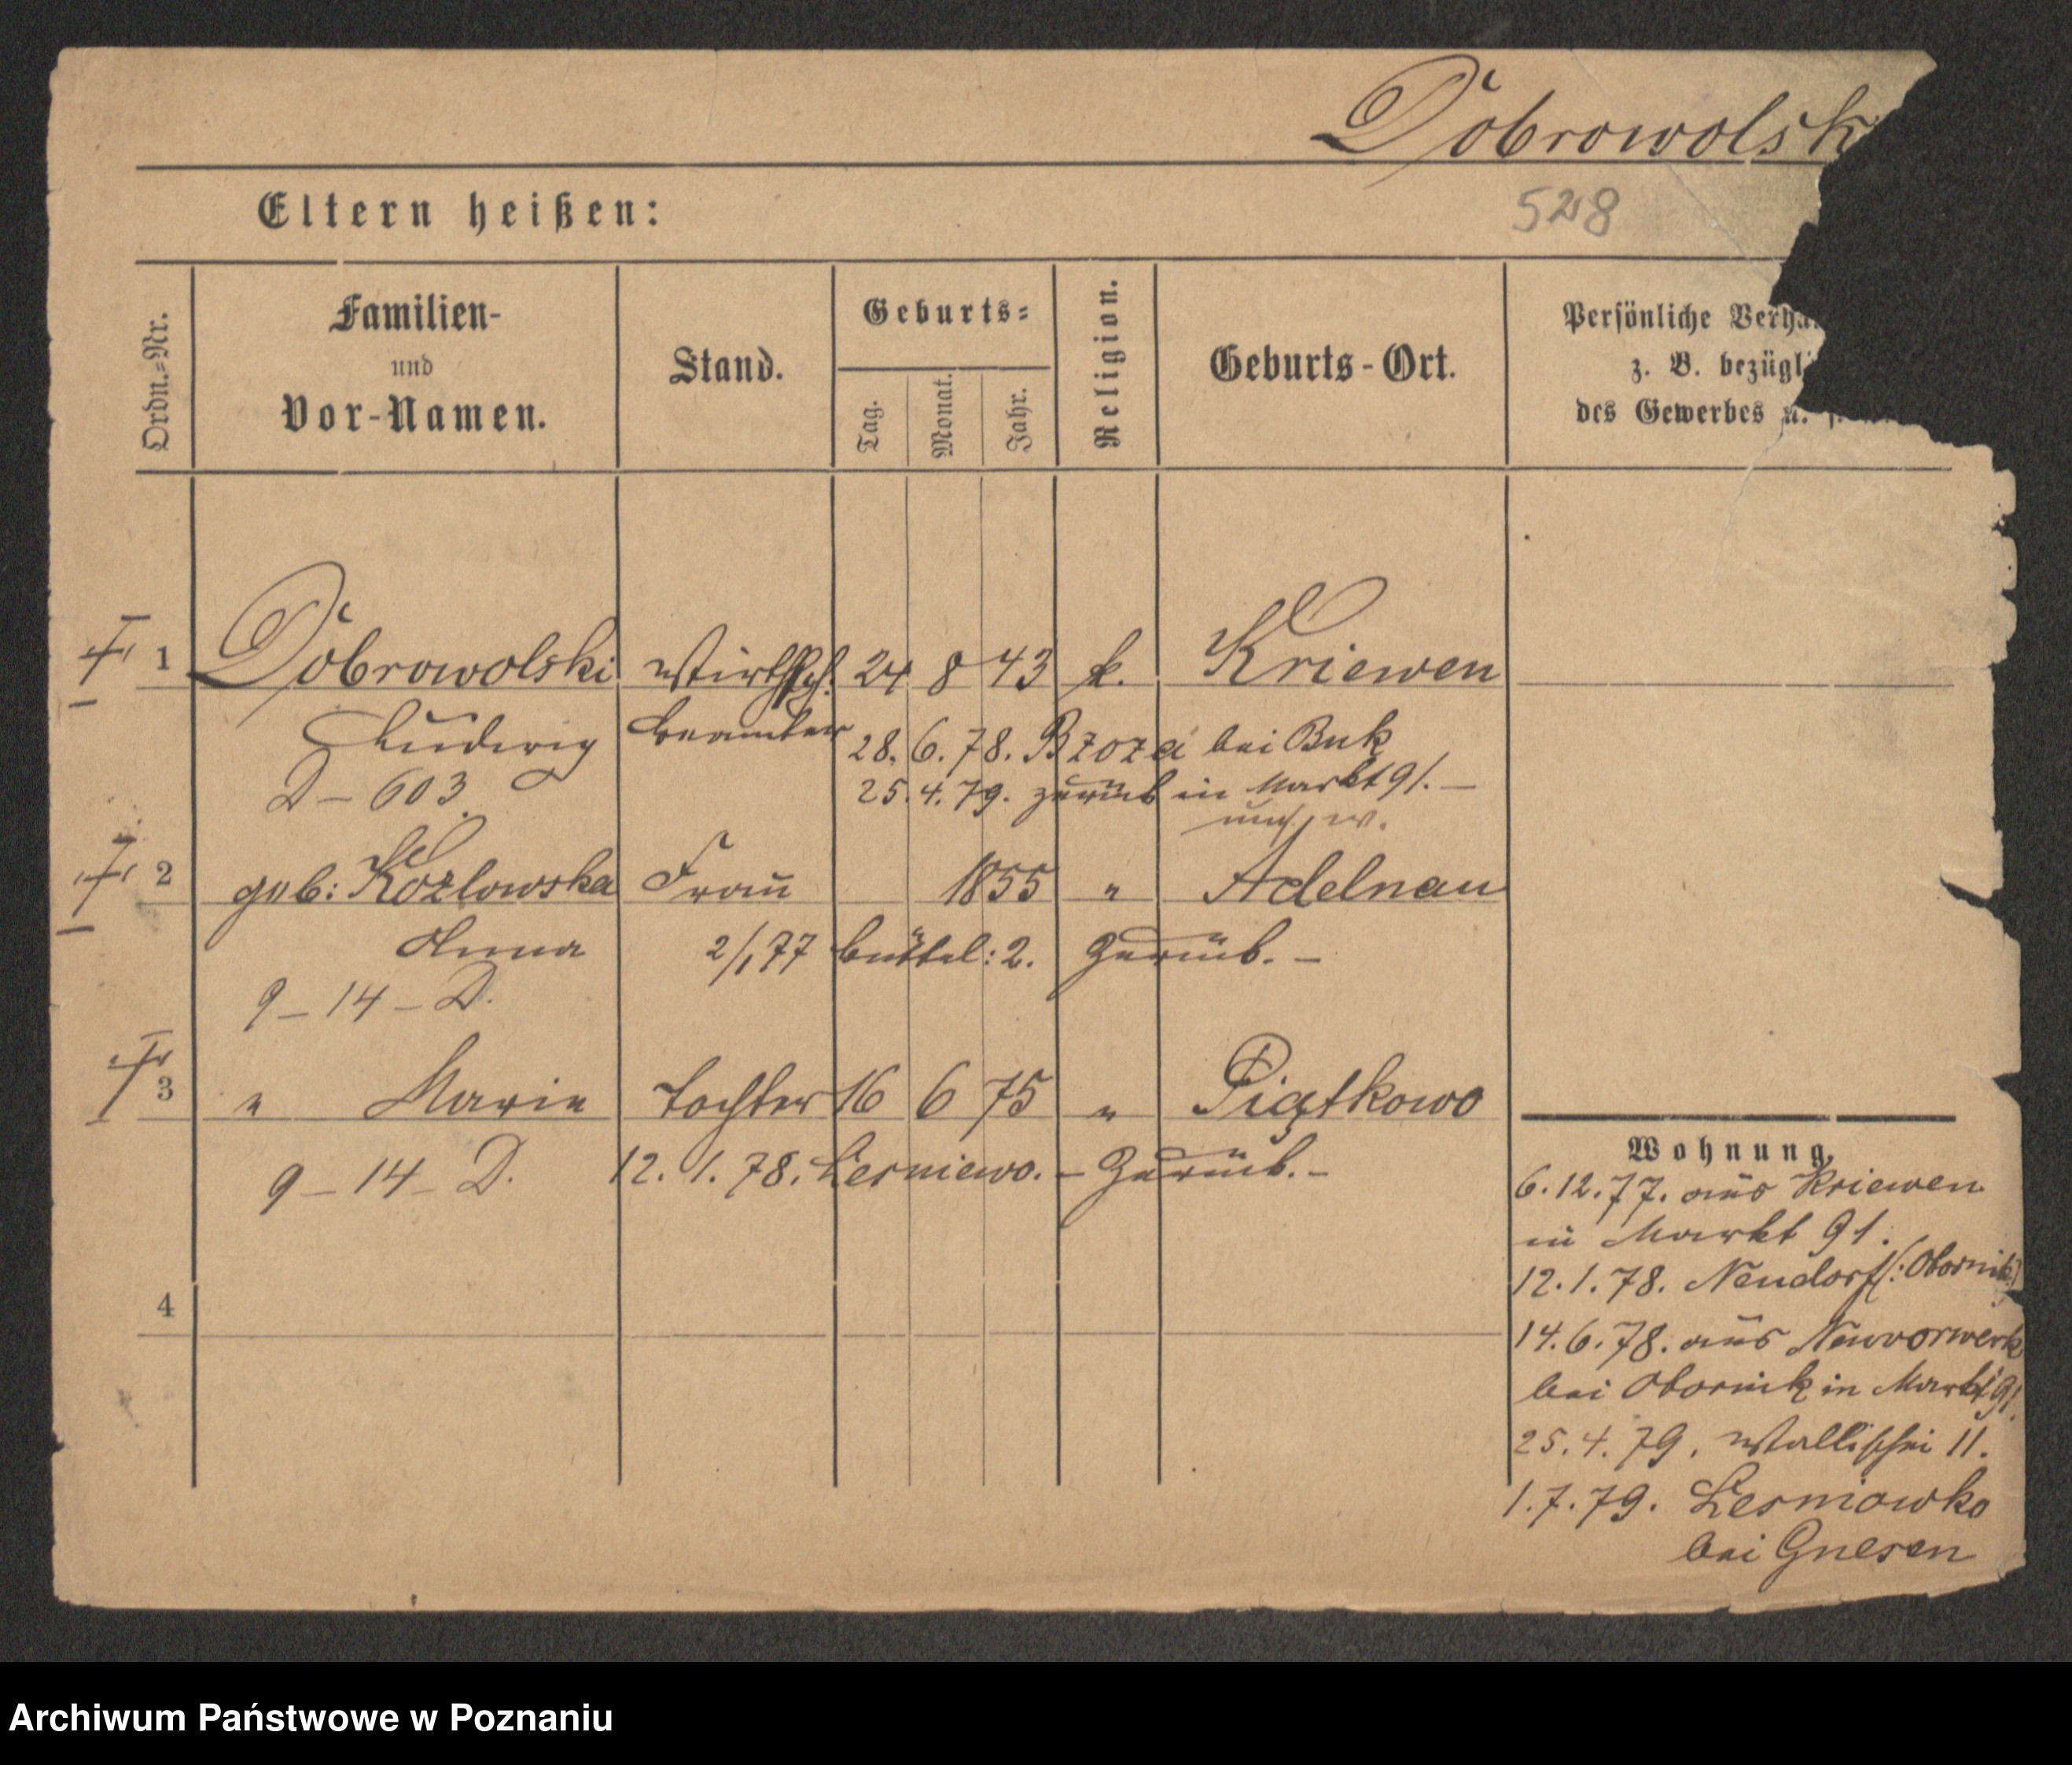 Dobrowolsk
Eltern heißen:
528
Ordn.-Nr.
Familien-
und
Vor-Namen.
Stand.
Geburts-
Tag.
Monat.
Jahr.
Religion.
Geburts-Ort.
Persönliche Verhä
z. B. bezügli
des Gewerbes u. s.
1 Dobrowolski Wirthsch. 24 8 43 k. Kriewen
Ludwig beamter 28. 6. 78. Bzoza bei Buk
D – 603. 25. 4. 79. zurück in Markt 91. –
2 geb: Kozlowska Frau 1855 " Adelnau
Anna 2/1 77 Büttel: 2. Zurück. –
9 – 14 – D.
3 " Marie Tochter 16 6 75 " Piątkowo
9 – 14 – D. 12. 1. 78. Lesniewo. – Zurück. –
4
Wohnung.
6. 12. 77. aus Kriewen
in Markt 91.
12. 1. 78. Neudorf (: Obornik :)
14. 6. 78. aus Neuvorwerk
bei Obornik in Markt 91.
25. 4. 79. Wallischei 11.
1. 7. 79. Lesniowko
bei Gnesen
Archiwum Państwowe w Poznaniu